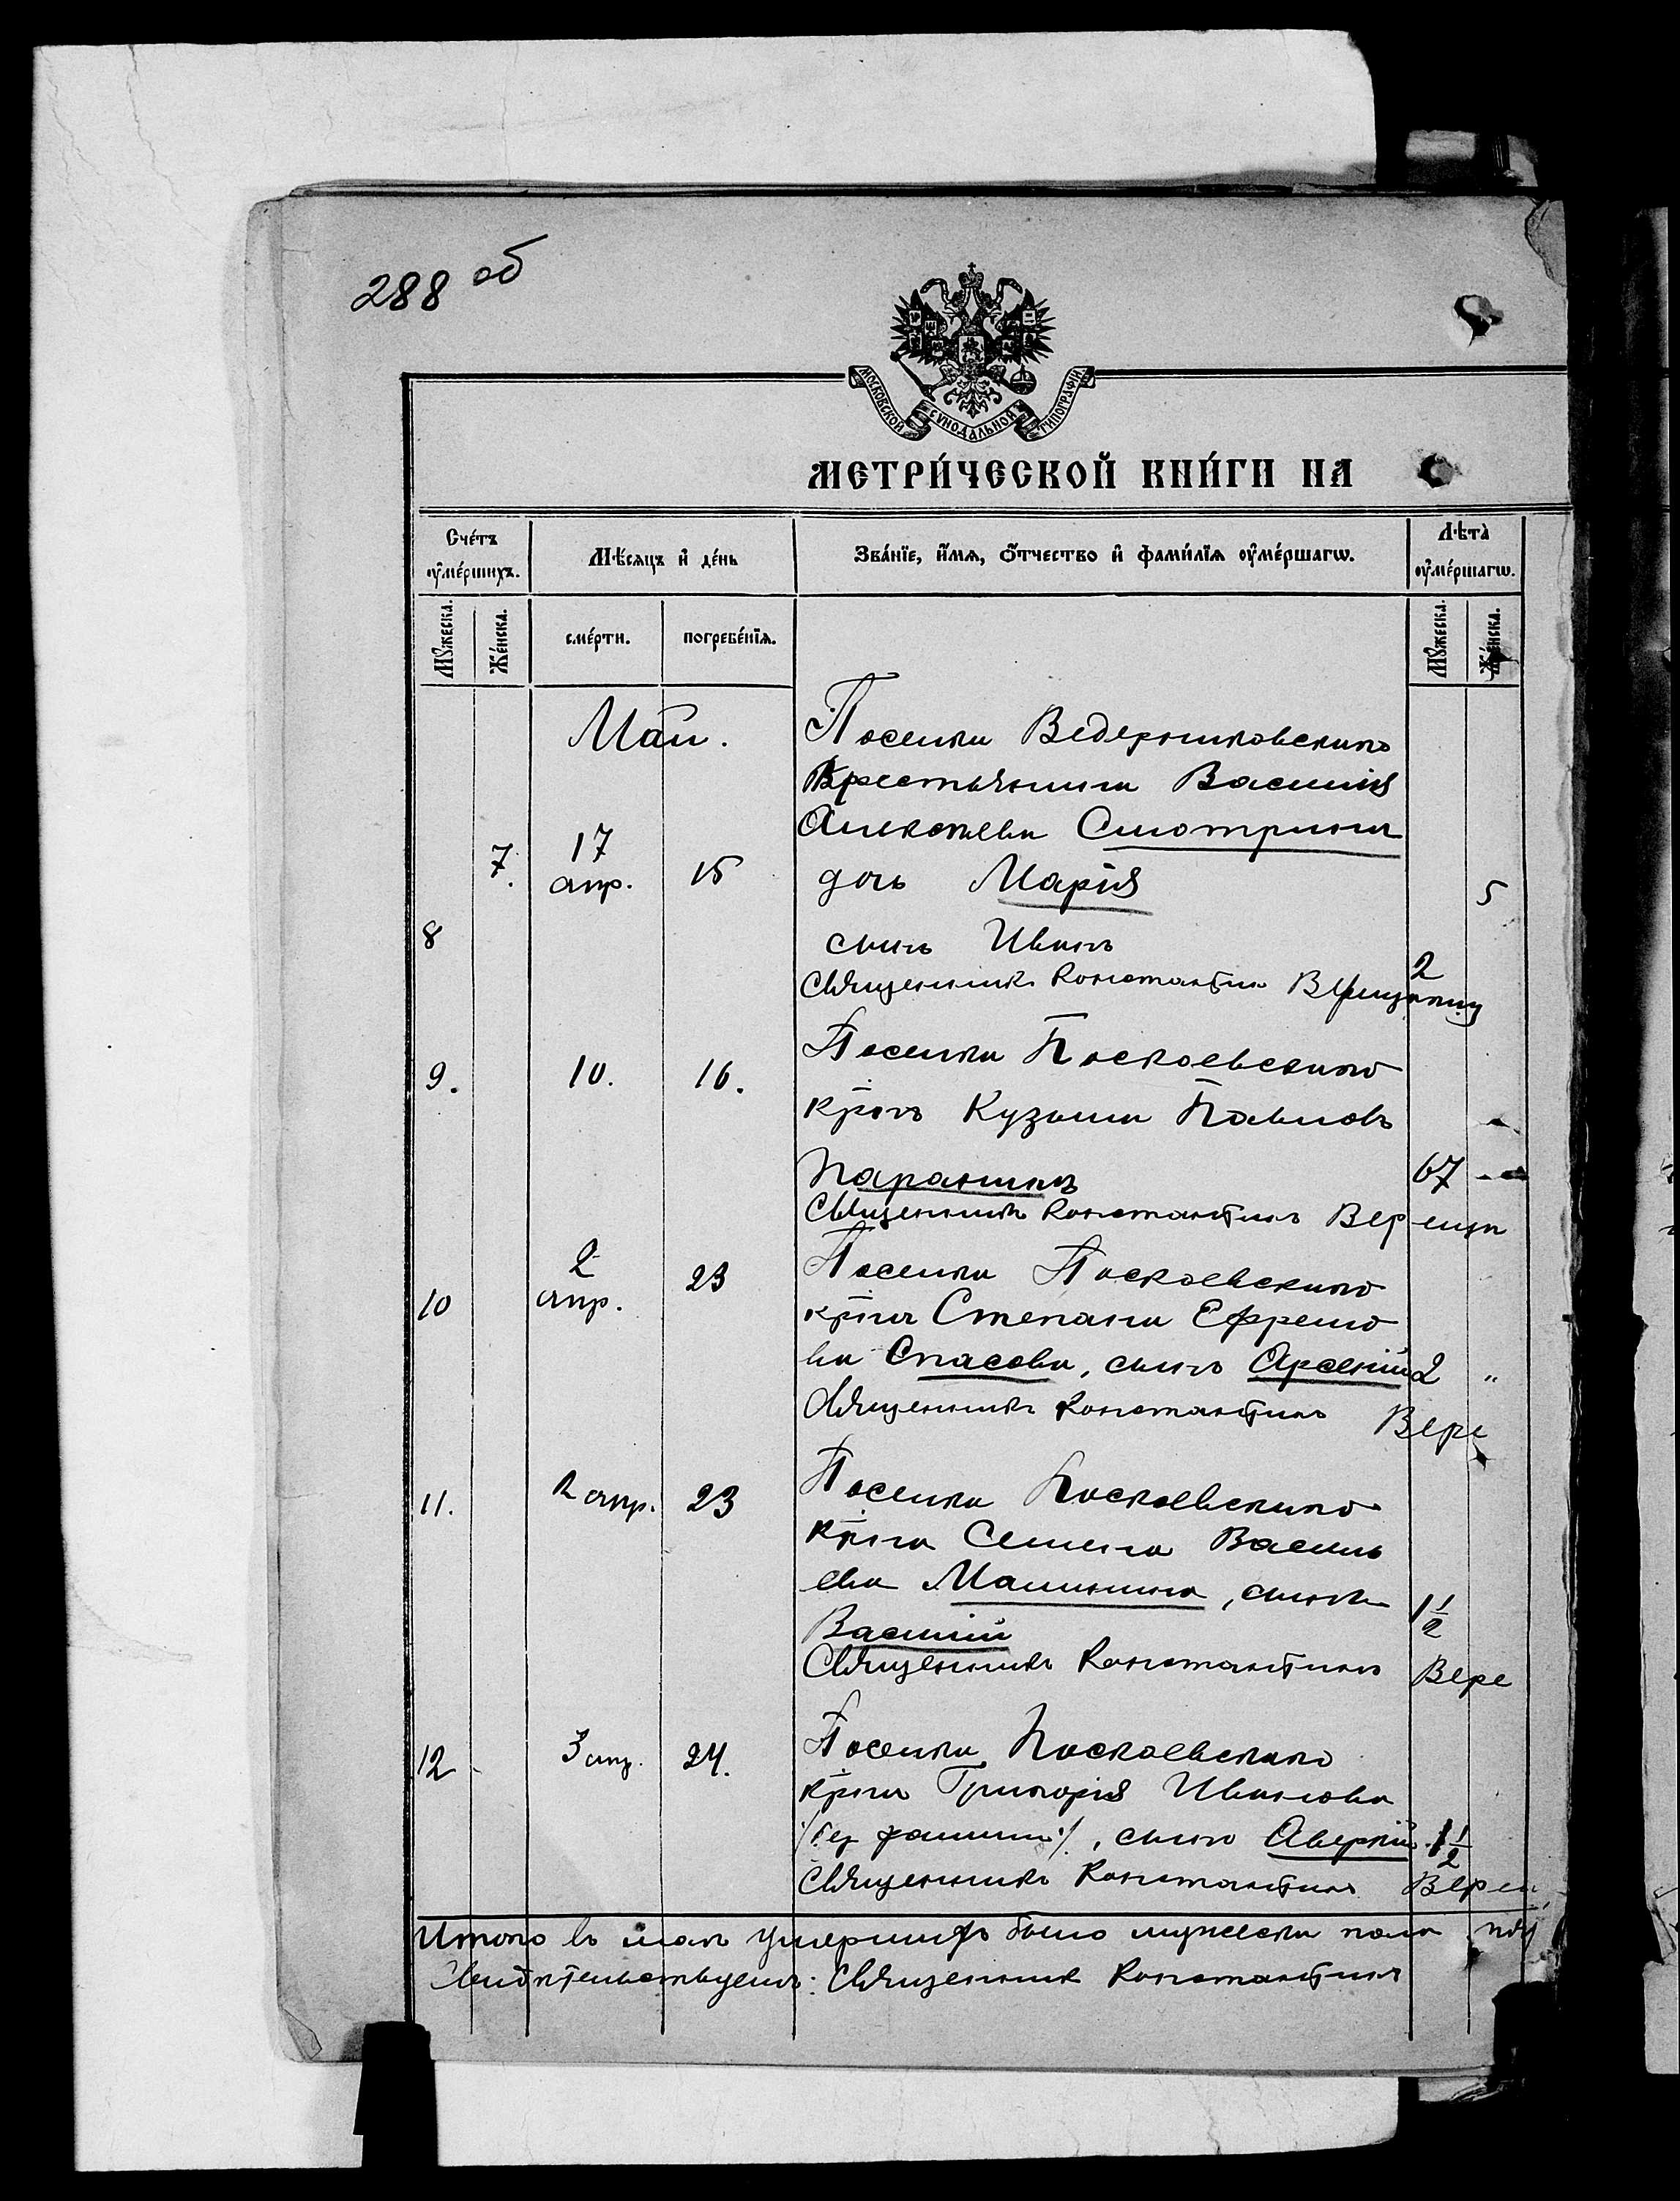 288 об
МОСКОВСКОЙ СѴНОДАЛЬНОЙ ТИПОГРАФІИ
МЕТРИ́ЧЕСКОЙ КНИ́ГИ НА
Сче́тъ ᲂу҆ме́ршихъ.
Мѣ́сяцъ и҆ де́нь
Зва́нїе, и҆́мя, ѻ҆́тчество и҆ фами́лїя ᲂу҆ме́ршагѡ.
Лѣта̀ ᲂу҆ме́ршагѡ.
Мꙋ́жеска.
Же́нска.
сме́рти.
погребе́нїя.
Мꙋ́жеска.
Же́нска.
Май.
Поселка Ведерниковскаго
Крестьянина Василія
Алексѣева Смотрина
7. 17 апр. 15 дочь Марія 5
8 сынъ Иванъ 2
Священникъ Константин
Поселка Поскоевскаго
9. 10. 16.
кр-нъ Кузьма Павловъ
Паранинъ 67
Священникъ Константинъ
Поселка Поскоевскаго
10 2 апр. 23
кр-на Степана Ефремо
ва Спасова, сынъ Арсеній 2 "
Священникъ Константинъ Вере
11. 2 апр. 23 Поселка Поскоевскаго
кр-на Семена Василь
ева Малинина, сынъ 1½
Василій
Священникъ Константинъ Вере
12 3 апр. 24. Поселка Поскоевскаго
кр-на Григорія Иванова
/без фамиліи/, сынъ Аверкій 1½
Священникъ Константинъ
Итого въ маѣ умершихъ было мужеска пола
Свидѣтельствуемъ: Священник Константин